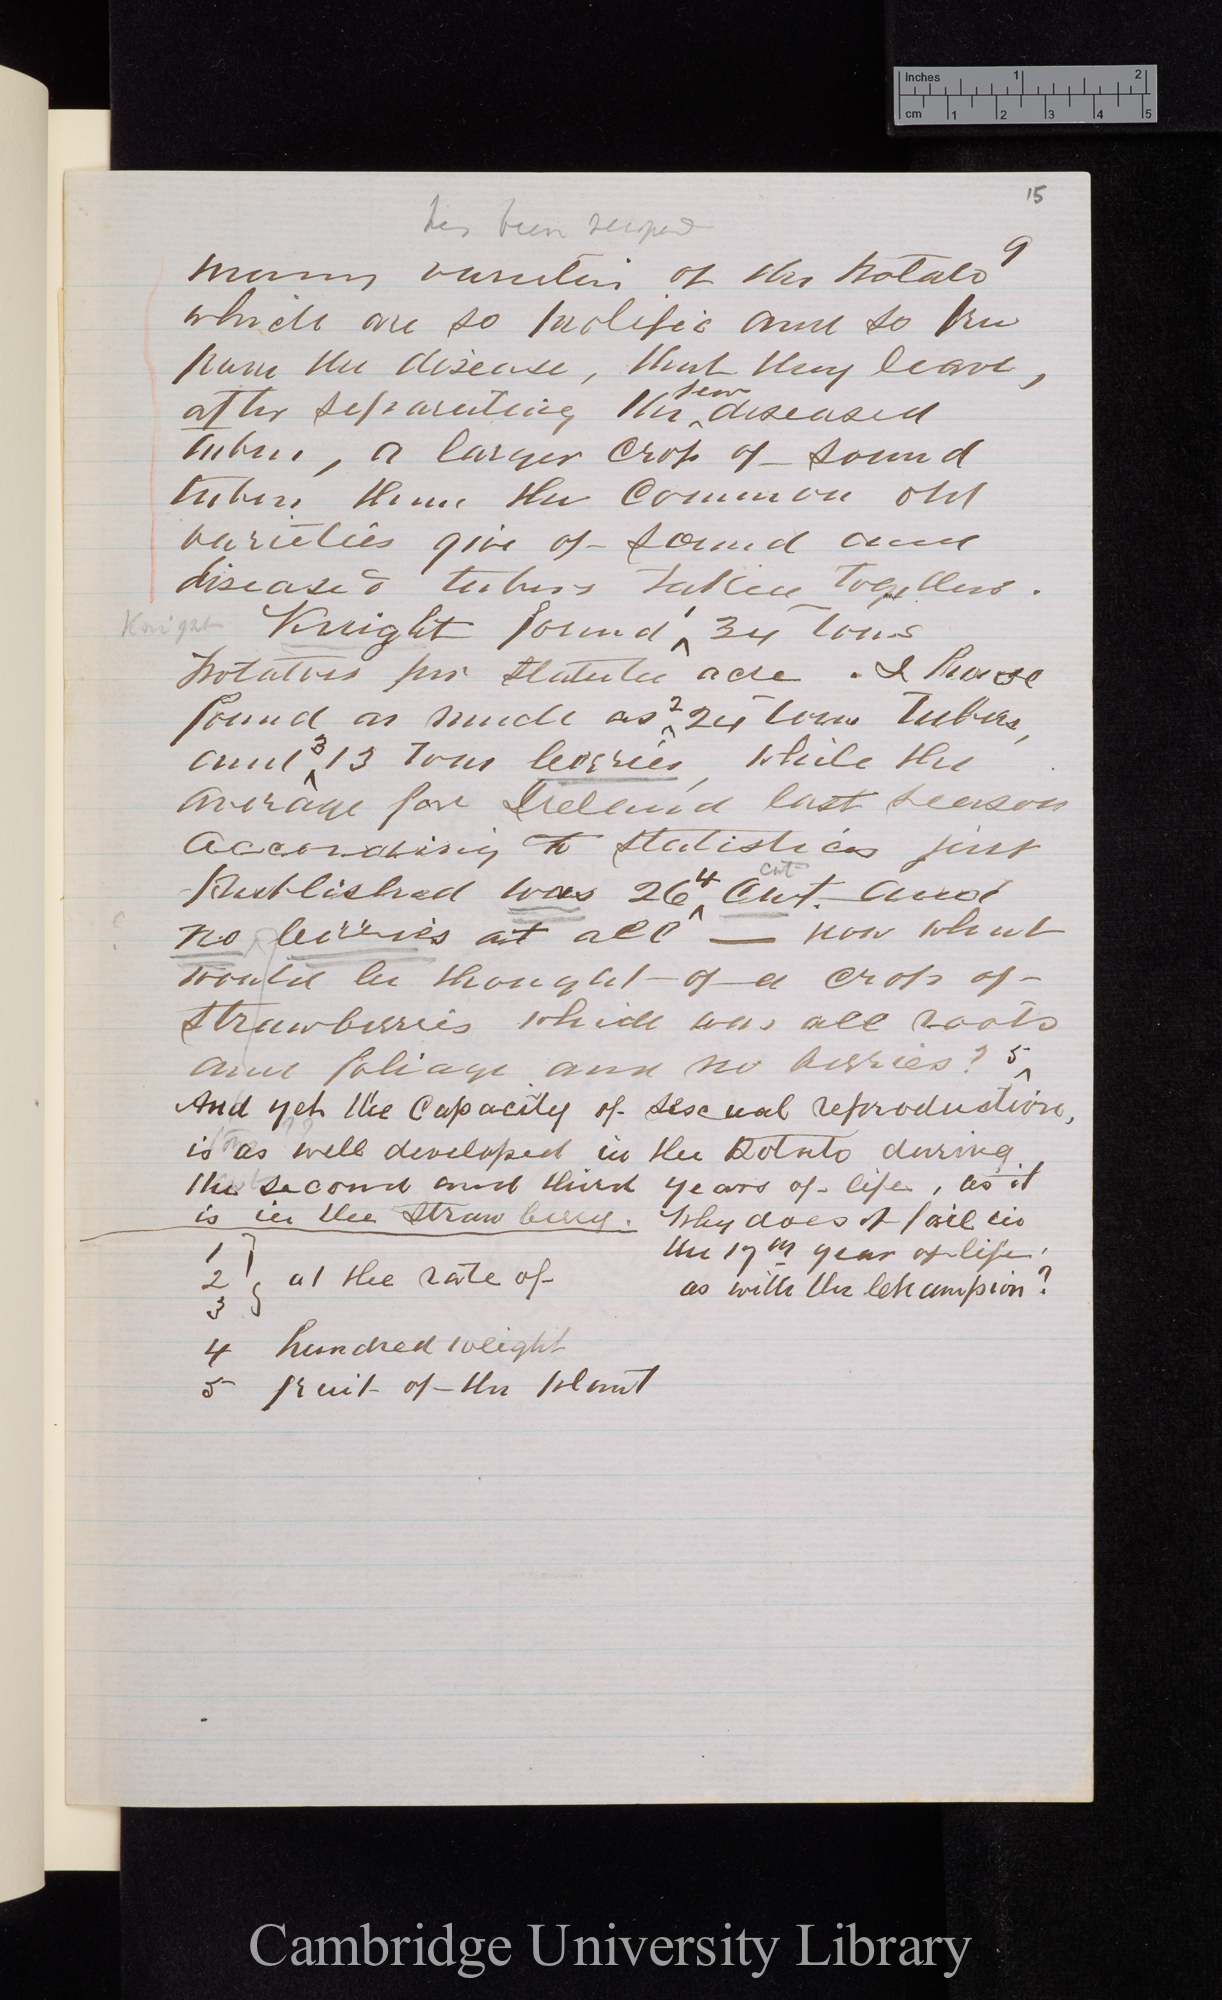 Inches 1 2
cm 1 2 3 4 5
15
has been reaped
9
many varieties of the Potato
which are so prolific and so free
from the disease, that they leave,
after separating the ^few diseased
tubers, a larger crop of sound
tubers than the Common old
varieties give of sound and
diseased tubers taken together.
Knight
Knight found ^1 34 tons
Potatoes per statute acre. I have
found as much as ^2 24 tons tubers,
and ^3 13 tons berries, while the
average for Ireland last season
according to statistics just
cwt
Published was 26 ^4 Cwt. and
?
no berries at all — now what
would be thought of a crop of
strawberries which was all roots
and foliage and no berries? ^5
And yet the Capacity of sexual reproduction,
is as well developed in the Potato during
the second and third years of life, as it
is in the Strawberry. Why does it fail in
the 17th year of life,
as with the Champion?
1
2 } at the rate of
3
4 hundred weight
5 fruit of the plant
Cambridge University Library